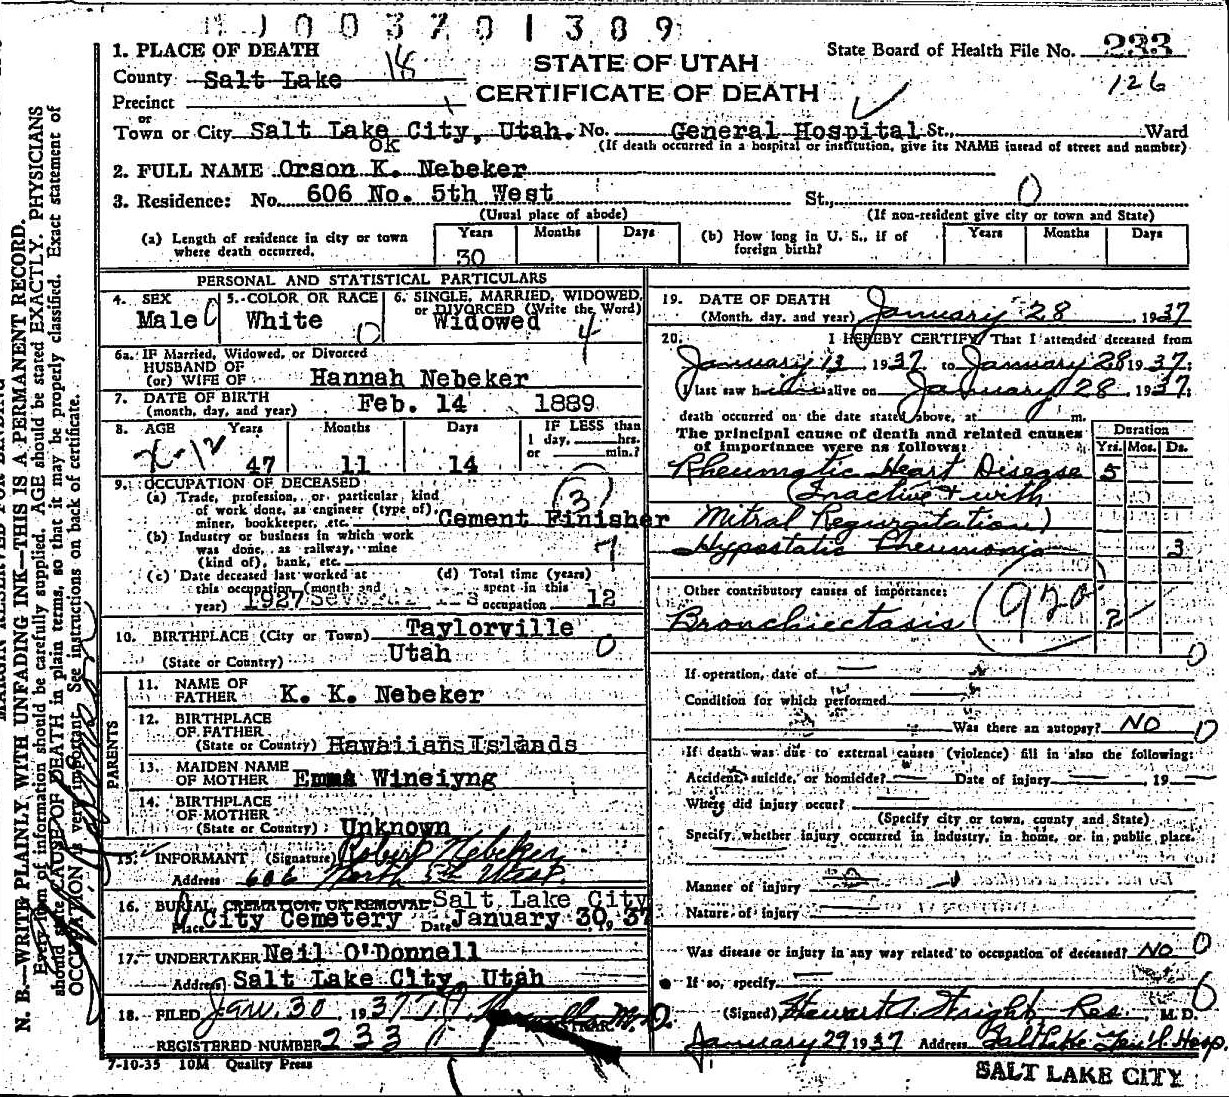 0 0 3 7 0 1 3 8 9
1. PLACE OF DEATH
County Salt Lake 18
Precinct
or
Town or City Salt Lake City, Utah. No. General Hospital St., Ward
ok
(If death occurred in a hospital or institution, give its NAME instead of street and number)
STATE OF UTAH
CERTIFICATE OF DEATH
State Board of Health File No. 233
126
2. FULL NAME Orson K. Nebeker
3. Residence: No. 606 No. 5th West St., 0
(Usual place of abode)
(If non-resident give city or town and State)
(a) Length of residence in city or town where death occurred.
Years Months Days
30
(b) How long in U. S., if of foreign birth?
Years Months Days
PERSONAL AND STATISTICAL PARTICULARS
4. SEX
Male
5. COLOR OR RACE
White 0
6. SINGLE, MARRIED, WIDOWED, or DIVORCED (Write the Word)
Widowed 4
6a. IF Married, Widowed, or Divorced
HUSBAND OF
(or) WIFE OF Hannah Nebeker
7. DATE OF BIRTH
(month, day, and year) Feb. 14 1889
8. AGE Years Months Days
47 11 14
IF LESS than
1 day, hrs.
or min.?
9. OCCUPATION OF DECEASED
(a) Trade, profession, or particular kind
of work done, as engineer (type of),
miner, bookkeeper, etc. Cement Finisher
3
(b) Industry or business in which work
was done, as railway, mine
(kind of), bank, etc.
7
(c) Date deceased last worked at
this occupation (month and
year) 1927
(d) Total time (years)
spent in this
occupation 12
10. BIRTHPLACE (City or Town) Taylorville
(State or Country) Utah 0
PARENTS
11. NAME OF
FATHER K. K. Nebeker
12. BIRTHPLACE
OF FATHER
(State or Country) Hawaiians Islands
13. MAIDEN NAME
OF MOTHER Emma Wineiyng
14. BIRTHPLACE
OF MOTHER
(State or Country) Unknown
15. INFORMANT (Signature) Robert Nebeker
Address 606 North 5th West.
16. BURIAL, CREMATION, OR REMOVAL Salt Lake City
Place City Cemetery Date January 30, 1937
17. UNDERTAKER Neil O'Donnell
Address Salt Lake City, Utah
18. FILED Jan. 30, 1937 M.D.
REGISTERED NUMBER 233
7-10-35 10M Quality Press
19. DATE OF DEATH
(Month, day, and year) January 28 1937
20. I HEREBY CERTIFY, That I attended deceased from
January 13 1937, to January 28 1937;
I last saw him alive on January 28, 1937;
death occurred on the date stated above, at m.
The principal cause of death and related causes
of importance were as follows:
Duration
Yrs. Mos. Ds.
Rheumatic Heart Disease 5
(Inactive + with
Mitral Regurgitation)
Hypostatic Pneumonia 3
Other contributory causes of importance:
Bronchiectasis ?
0
If operation, date of
Condition for which performed
Was there an autopsy? NO 0
If death was due to external causes (violence) fill in also the following:
Accident, suicide, or homicide? Date of injury 19
Where did injury occur?
(Specify city or town, county and State)
Specify, whether injury occurred in industry, in home, or in public place.
Manner of injury
Nature of injury
Was disease or injury in any way related to occupation of deceased? NO 0
If so, specify
6
(Signed) Stewart A. Wright, Res. M. D.
January 29 1937 Address Salt Lake Gen'l. Hosp.
SALT LAKE CITY
N. B.—WRITE PLAINLY, WITH UNFADING INK—THIS IS A PERMANENT RECORD.
Every item of information should be carefully supplied. AGE should be stated EXACTLY. PHYSICIANS
should state CAUSE OF DEATH in plain terms, so that it may be properly classified. Exact statement of
OCCUPATION is very important. See instructions on back of certificate.